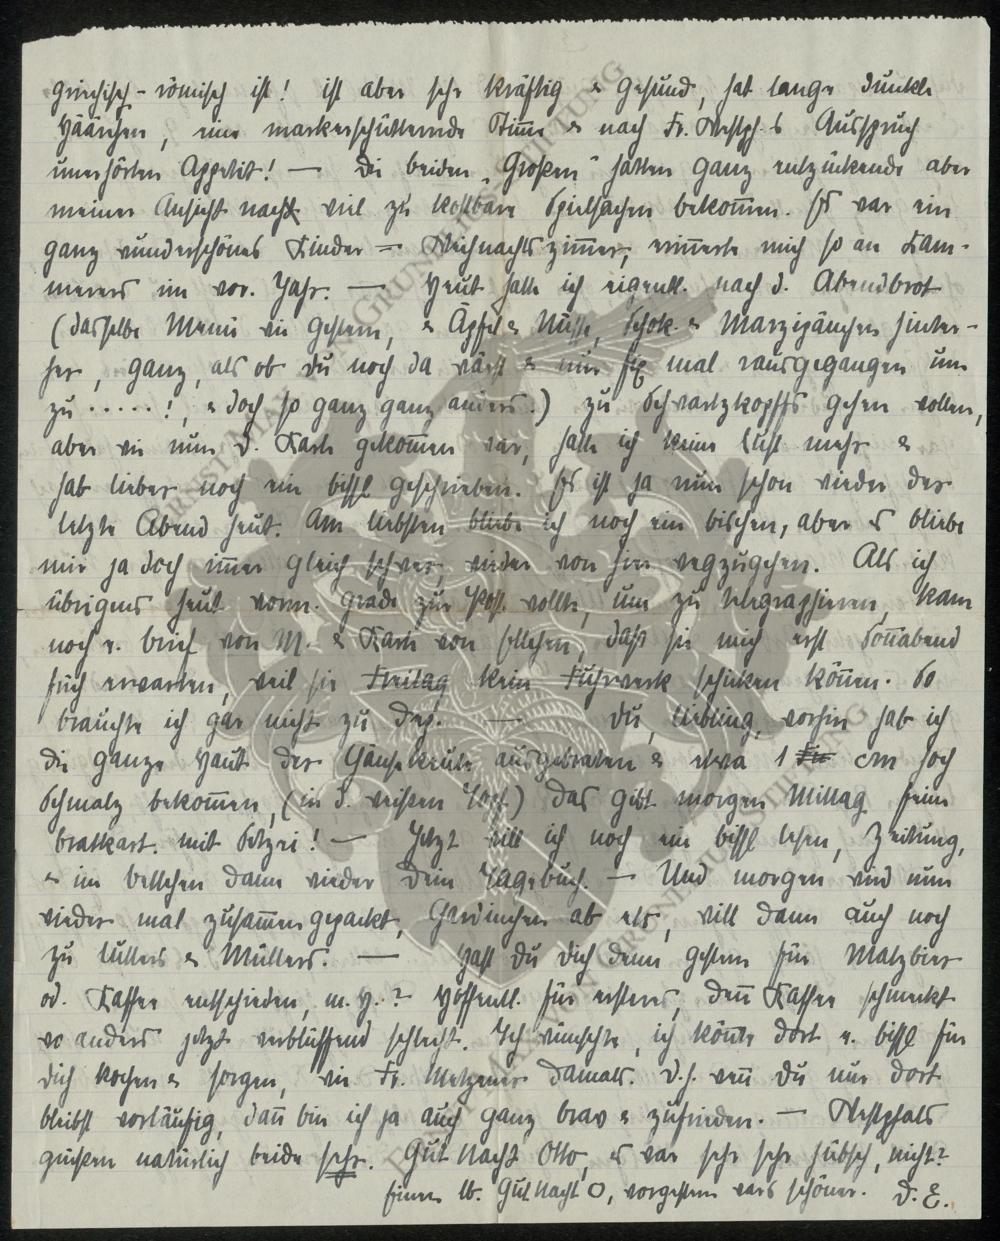 griechisch-römisch ist! ist aber sehr kräftig & gesund, hat lange dunkle
Häärchen, eine markerschütternde Stimme & nach Fr. Westph.s Ausspruch
unerhörten Appetit! — Die beiden „Großen" hatten ganz entzückende aber
meiner Ansicht nach viel zu kostbare Spielsachen bekommen. Es war ein
ganz wunderschönes Kinder = Weihnachtszimmer, erinnerte mich so an Kam-
merers im vor. Jahr. — Heut hatte ich eigentl. nach d. Abendbrot
(dasselbe Menü wie gestern, & Äpfel & Nüsse, Schok. & Marzipänchen hinter-
her, ganz, als ob du noch da wärst & nur fix mal rausgegangen um
zu .....! & doch so ganz ganz anders.) zu Schwartzkopffs gehen wollen,
aber wie nun d. Karte gekommen war, hatte ich keine Lust mehr &
hab lieber noch ein bissl geschrieben. Es ist ja nun schon wieder der
letzte Abend heut. Am liebsten bliebe ich noch ein bischen, aber es bliebe
mir ja doch immer gleich schwer, wieder von hier wegzugehen. Als ich
übrigens heut vorm. grade zur Post wollte, um zu telegraphieren, kam
noch e. Brief von M. & Karte von daß sie mich erst Sonnabend
früh erwarten, weil sie Freitag kein Fuhrwerk schicken können. So
brauchte ich gar nicht zu dep. — Du, Liebling, vorhin hab ich
die ganze Haut der Gänsekeule ausgebraten & etwa 1 cm hoch
Schmalz bekommen, (in d. weißen) Das gibt morgen Mittag feine
Bratkart. mit Setzei! — Jetzt will ich noch ein bissl lesen, Zeitung,
& im Bettchen dann wieder Dein Tagebuch. — Und morgen wird nun
wieder mal zusammengepackt, Gardinchen ab etc, will dann auch noch
zu Lutters & Müllers. — Hast Du Dich denn gestern für Malzbier
od. Kaffee entschieden, m. H.? Hoffentl. für ersteres, denn Kaffee schmeckt
wo anders jetzt verblüffend schlecht. Ich wünschte, ich könnte dort e. bissl für
dich kochen & sorgen, wie Fr. Metzener damals. D.h. wenn Du nur dort
bleibst vorläufig, dann bin ich ja auch ganz brav & zufrieden. — Westphals
grüßen natürlich beide sehr. Gut Nacht Otto, es war sehr sehr hübsch, nicht?
lb. Gut Nacht O, vorgestern wars schöner. D. E.
ERNST MAY VON GRUNELIUS-STIFTUNG